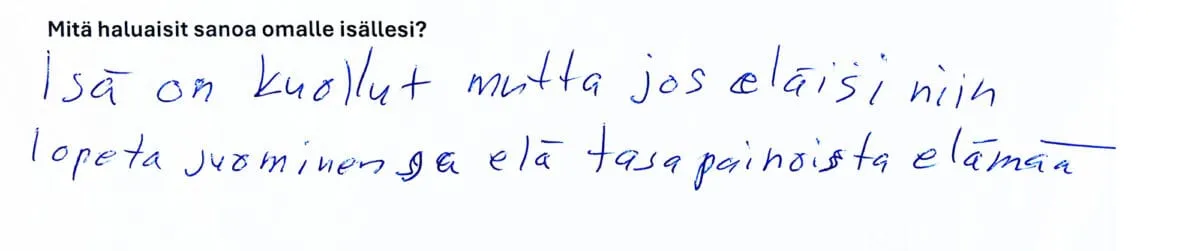 Mitä haluaisit sanoa omalle isällesi?
Isä on kuollut mutta jos eläisi niin
lopeta juominen ja elä tasapainoista elämää